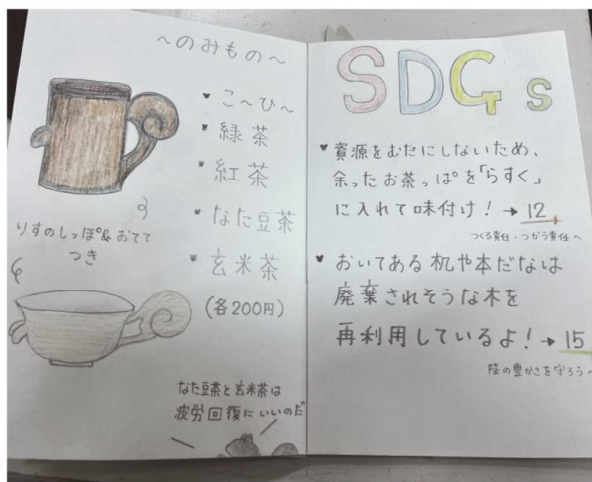 ～のみもの～
こ～ひ～
緑茶
紅茶
なた豆茶
玄米茶
(各200円)
りすのしっぽ&おてて
つき
なた豆茶と玄米茶は
疲労回復にいいのだ
SDGs
資源をむだにしないため、
余ったお茶っぱを「らすく」
に入れて味付け!→12
つくる責任・つかう責任へ
おいてある机や本だなは
廃棄されそうな木を
再利用しているよ!→15
陸の豊かさを守ろうへ